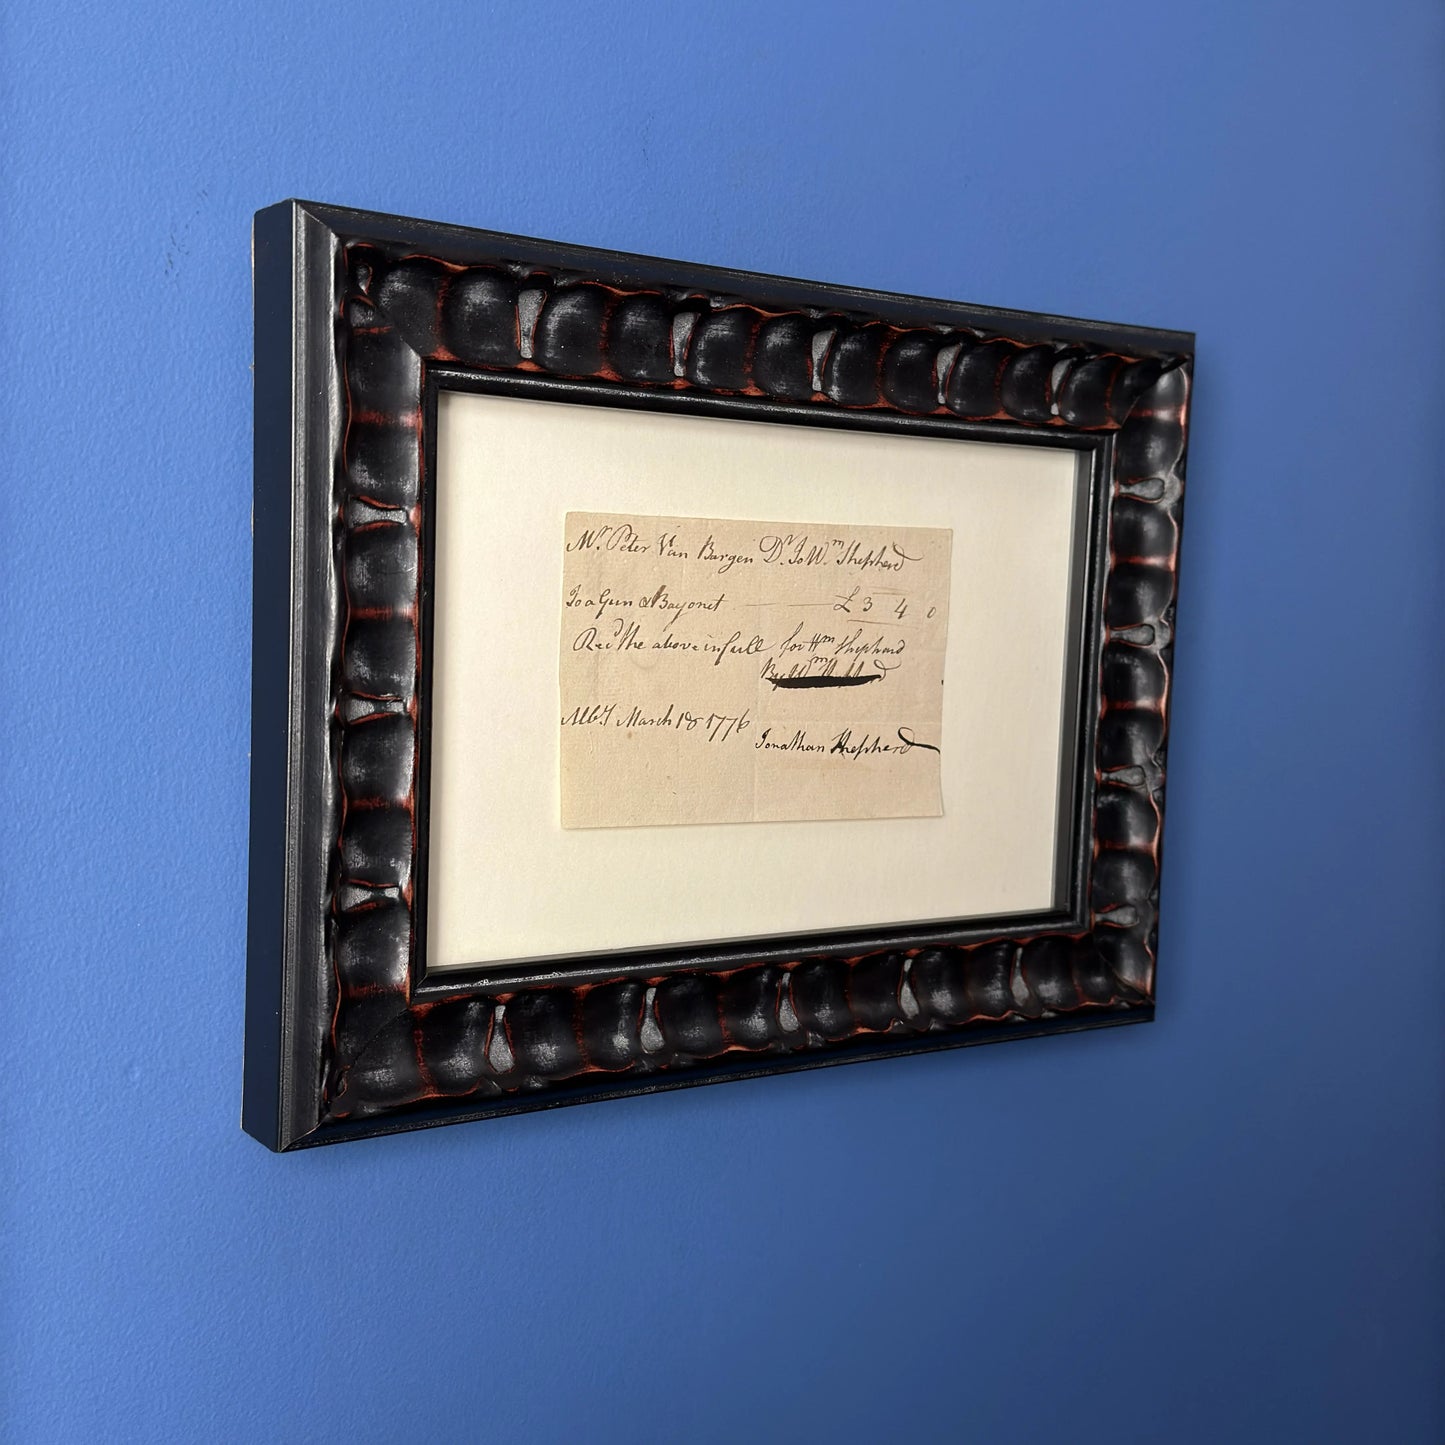 Mr. Peter Van Bargen Dr. To Wm. Shepherd
To a Gun & Bayonet £ 3 4 0
Recd the above in full for Wm Shepherd
By Wm
March 18 1776
Jonathan Shepherd